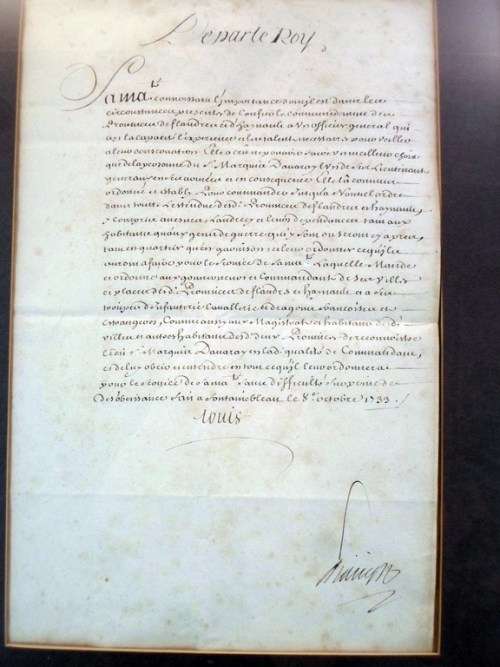 De par le Roy,
Sa ma.té connoissant l'importance dont il est dans les
circonstances presentes de confier le commandement des
Provinces de flandres et d'haynault a un officier general qui
ait la capacité l'experience et les talens necessaires pour veiller
a leur conservation Elle a cru ne pouvoir faire un meilleur choix
que de la personne du S. Marquis Davaray l'un de ses Lieutenans
generaux en ses armées et en consequence Elle l'a commis
ordonné et estably Pour commander jusqu'a nouvel ordre
dans toute l'estendue desd. Provinces de flandres et haynault
y compris avesnes Landrecy et leurs dependances tant aux
habitans qu'aux gens de guerre qui y sont ou seront cy apres
tant en quartier qu'en garnison et leur ordonner ce qu'ils
auront a faire pour le service de sa ma.té Laquelle Mande
et ordonne aux gouverneurs et Commandans de ses villes
et places desd. Provinces de flandres et haynault a ses
troupes d'infanterie cavallerie et dragons françoises et
estrangeres, Commissaires Magistrats et habitans desd.
villes et autres habitans desd. deux Provinces de reconnoistre
led. S. Marquis Davaray en lad. qualité de Commandant,
et de luy obeir et entendre en tout ce qu'il leur ordonnera
pour le service de sa ma.té sans difficulté sur peine de
desobeissance fait a fontainebleau le 8.e octobre 1733.
Louis